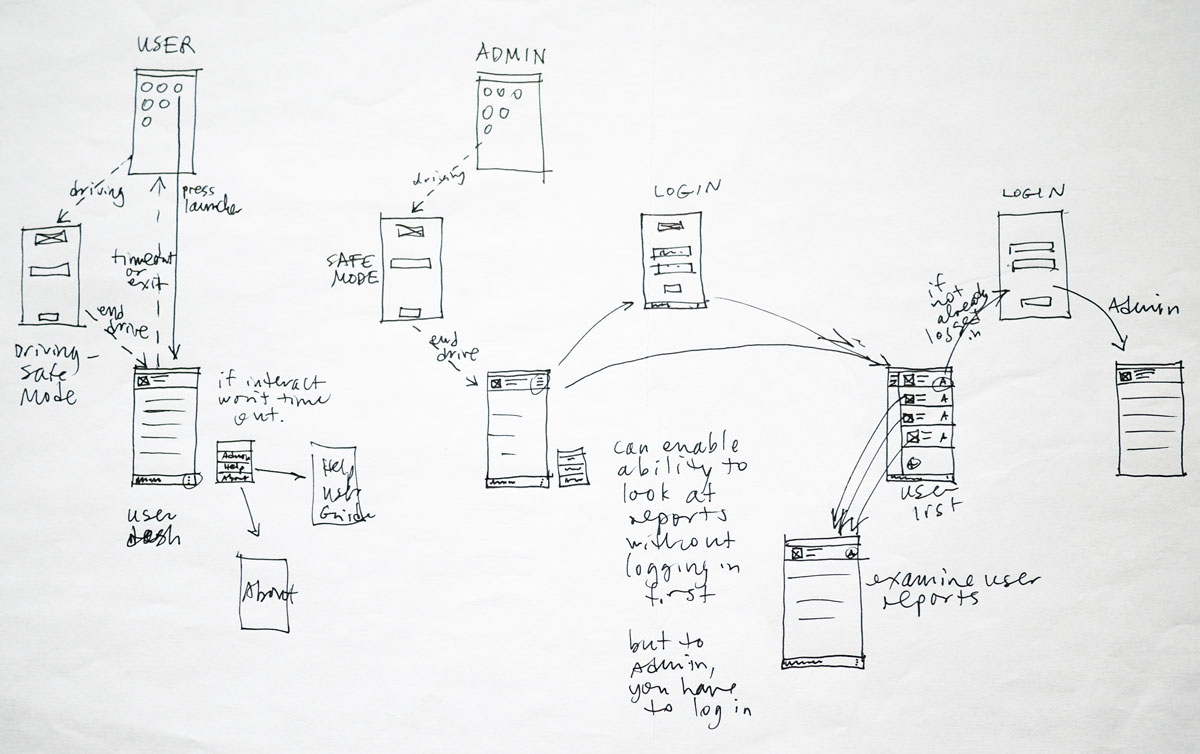 USER
driving
press
launcher
timeout
or
exit
end
drive
Driving
Safe
Mode
if interact
won't time
out.
Admin
Help
About
Help
User
Guide
user
dash
About
ADMIN
driving
SAFE
MODE
end
drive
LOGIN
can enable
ability to
look at
reports
without
logging in
first
but to
Admin,
you have
to log in
LOGIN
if
not
already
logged
in
Admin
A
A
A
A
A
user
list
A
examine user
reports